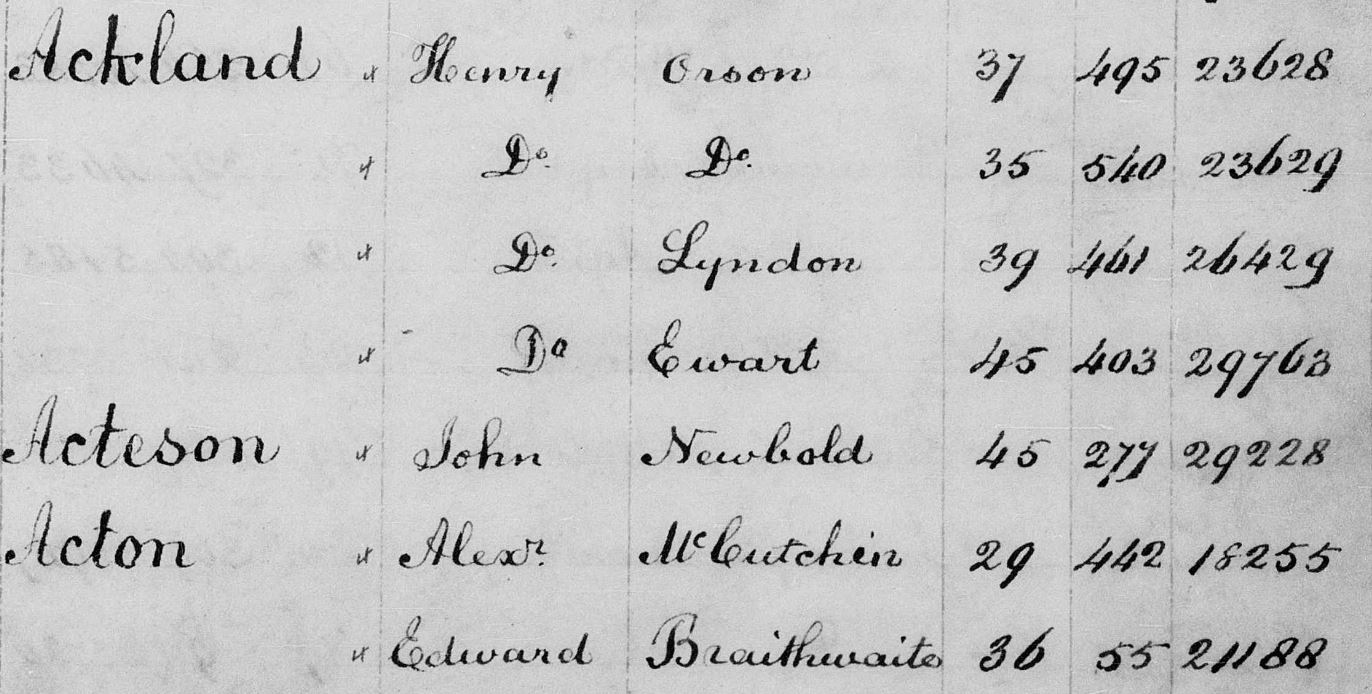 Ackland " Henry Orson 37 495 23628
" Do. Do. 35 540 23629
" Do. Lyndon 39 461 26429
" Do Ewart 45 403 29763
Acteson " John Newbold 45 277 29228
Acton " Alexr. McCutchin 29 442 18255
" Edward Braithwaite 36 55 21188